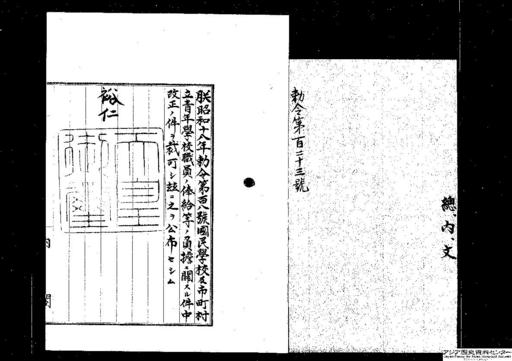 總、內、文
勅令第百二十三號
朕昭和十八年勅令第百八號國民學校及市町村
立青年學校職員ノ俸給等ノ負擔ニ關スル件中
改正ノ件ヲ裁可シ茲ニ之ヲ公布セシム
裕仁
天皇御璽
内閣
アジア歴史資料センター